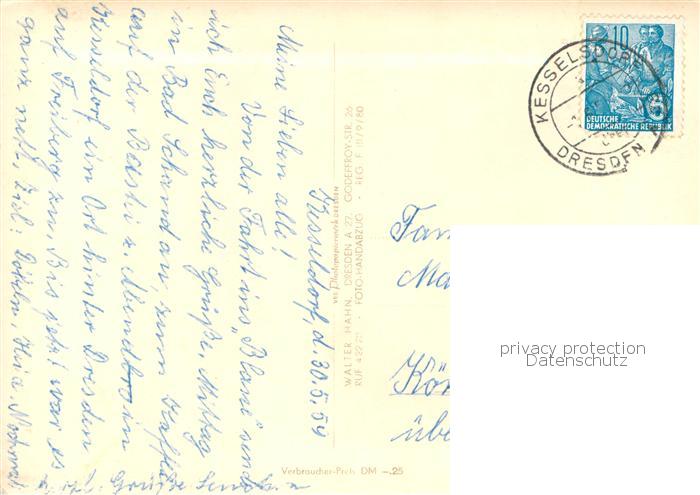 Kesseldorf, d. 30.5.59
Meine Lieben alle!
Von der Fahrt ins „Blaue" sende
ich Euch herzliche Grüße. Mittag
in Bad Schandau zum Kaffee
auf der Bastei u. Abendbro in
Kesseldorf ein Ort hinter Dresden
auf Freiberg zu. Bis jetzt war es
ganz nett. Ziel:
Grüße
VEB Photopapierwerk DRESDEN
WALTER HAHN, DRESDEN A 27, GODEFFROY-STR. 26
FOTO-HANDABZUG REG. F III/9/80
Verbraucher-Preis DM -.25
KESSELSDORF
DRESDEN
10
5
DEUTSCHE
DEMOKRATISCHE REPUBLIK
Fam
Ma
Kön
übe
privacy protection
Datenschutz